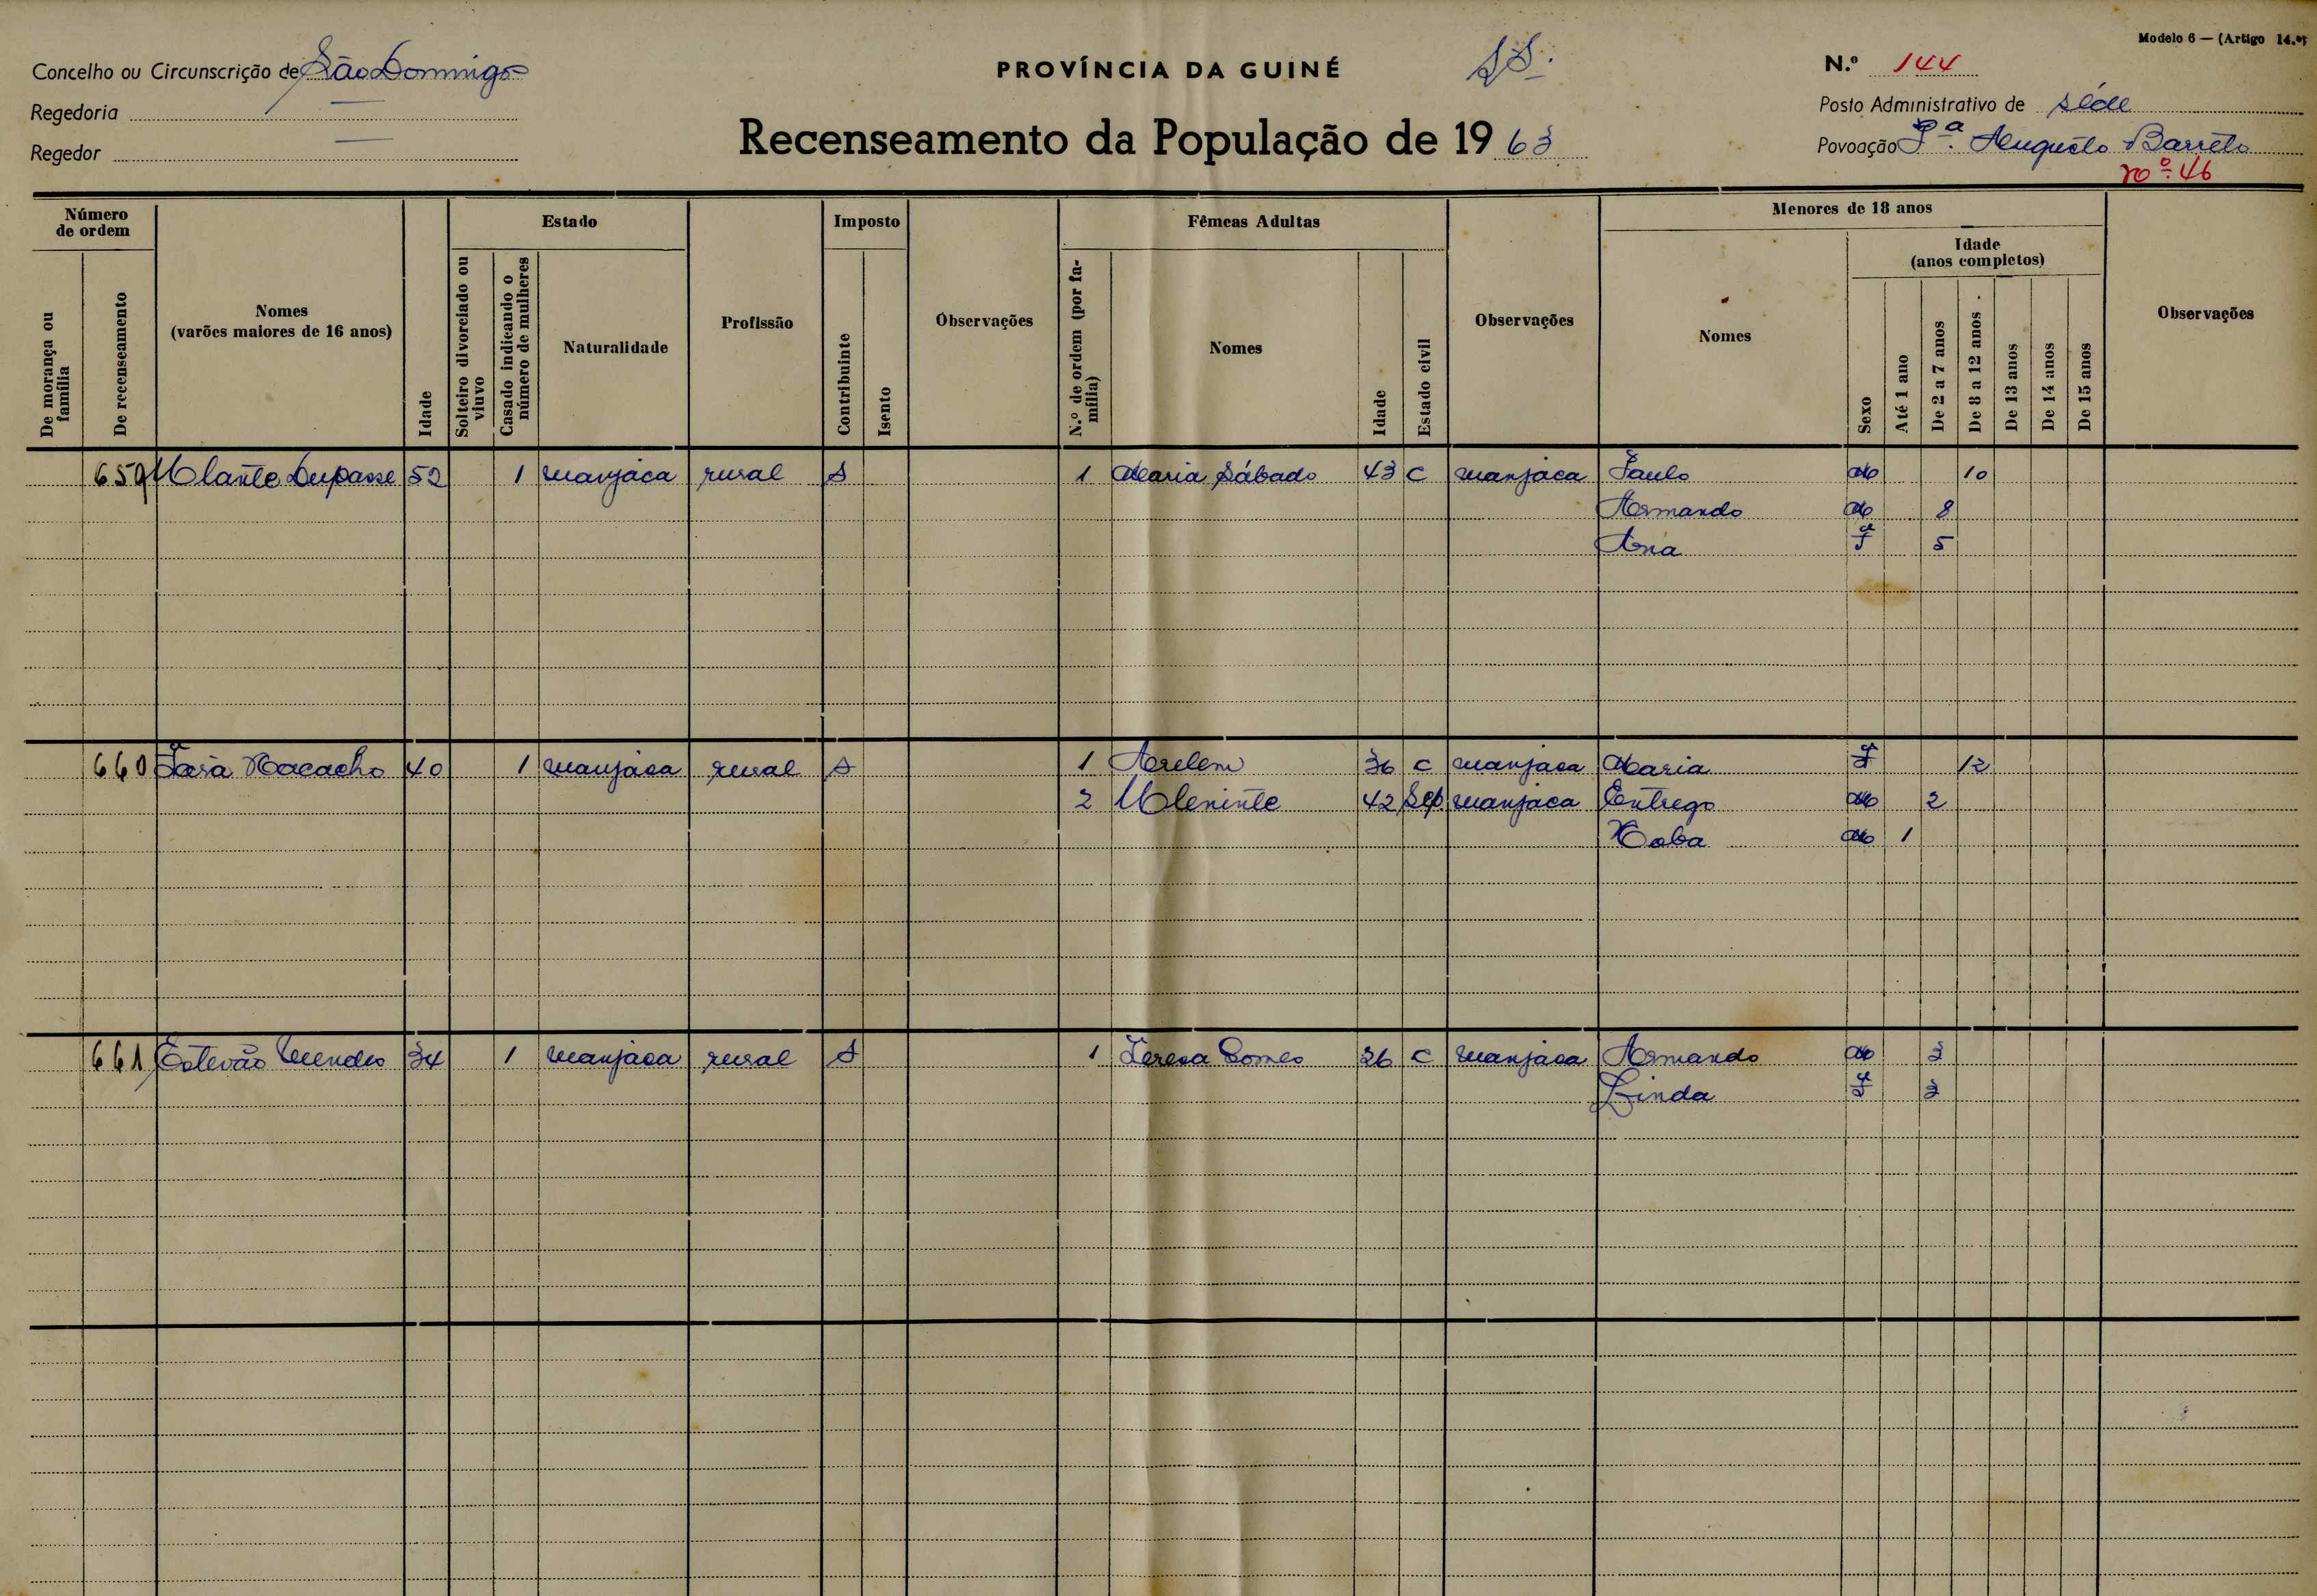 Modelo 6 — (Artigo 14.º)
Concelho ou Circunscrição de São Domingos
PROVÍNCIA DA GUINÉ
N.º 144
Regedoria —
Posto Administrativo de Séde
Regedor —
Recenseamento da População de 1963
Povoação Pª. Augusto Barreto
nº. 46
Número de ordem
De morança ou família
De recenseamento
Nomes (varões maiores de 16 anos)
Idade
Estado
Solteiro divorciado ou viuvo
Casado indicando o número de mulheres
Naturalidade
Profissão
Imposto
Contribuinte
Isento
Observações
Fêmeas Adultas
N.º de ordem (por família)
Nomes
Idade
Estado civil
Observações
Menores de 18 anos
Nomes
Idade (anos completos)
Sexo
Até 1 ano
De 2 a 7 anos
De 8 a 12 anos
De 13 anos
De 14 anos
De 15 anos
Observações
659 52 1 manjaca rural S 1 Maria Sábado 43 C manjaca Paulo M 10
Armando M 8
Ana F 5
660 40 1 manjaca rural S 1 36 C manjaca Maria F 12
2 42 Sep manjaca Entrega M 2
M 1
661 Estevão Mendes 34 1 manjaca rural S 1 Teresa Gomes 26 C manjaca Armando M 3
Linda F 2